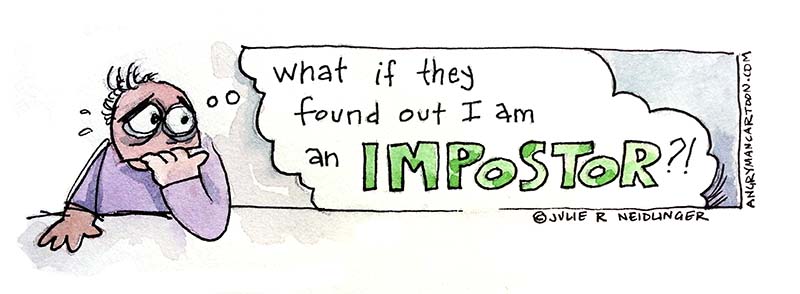 what if they
found out I am
an IMPOSTOR?!
© JULIE R NEIDLINGER
ANGRYMANCARTOON.COM